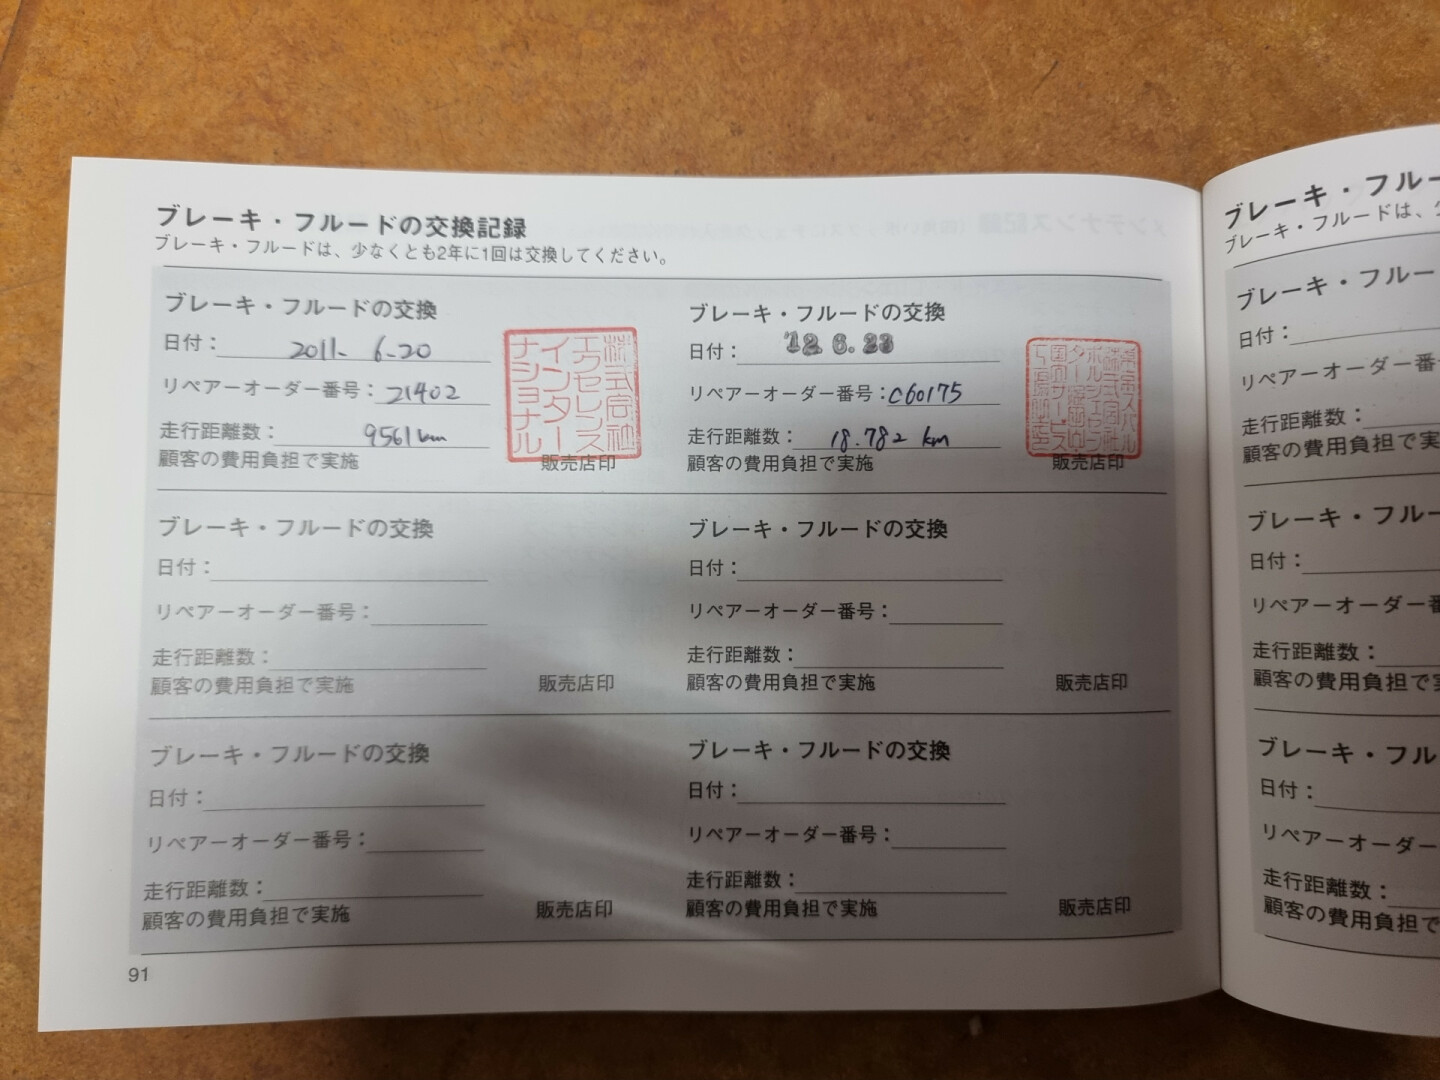 ブレーキ・フルードの交換記録
ブレーキ・フルードは、少なくとも2年に1回は交換してください。
ブレーキ・フルードの交換
日付： 2011- 6-20
リペアーオーダー番号： 21402
走行距離数： 9561km
顧客の費用負担で実施
株式会社
エクセレンス
インター
ナショナル
販売店印
ブレーキ・フルードの交換
日付： '12 6.23
リペアーオーダー番号：C60175
走行距離数： 18.782 km
顧客の費用負担で実施
販売店印
ブレーキ・フルードの交換
日付：
リペアーオーダー番号：
走行距離数：
顧客の費用負担で実施
販売店印
ブレーキ・フルードの交換
日付：
リペアーオーダー番号：
走行距離数：
顧客の費用負担で実施
販売店印
ブレーキ・フルードの交換
日付：
リペアーオーダー番号：
走行距離数：
顧客の費用負担で実施
販売店印
ブレーキ・フルードの交換
日付：
リペアーオーダー番号：
走行距離数：
顧客の費用負担で実施
販売店印
91
ブレーキ・フルー
ブレーキ・フルードは、
ブレーキ・フルー
日付：
リペアーオーダー番
走行距離数：
顧客の費用負担で
ブレーキ・フルー
日付：
リペアーオーダー番
走行距離数：
顧客の費用負担で
ブレーキ・フル
日付：
リペアーオーダー
走行距離数：
顧客の費用負担で